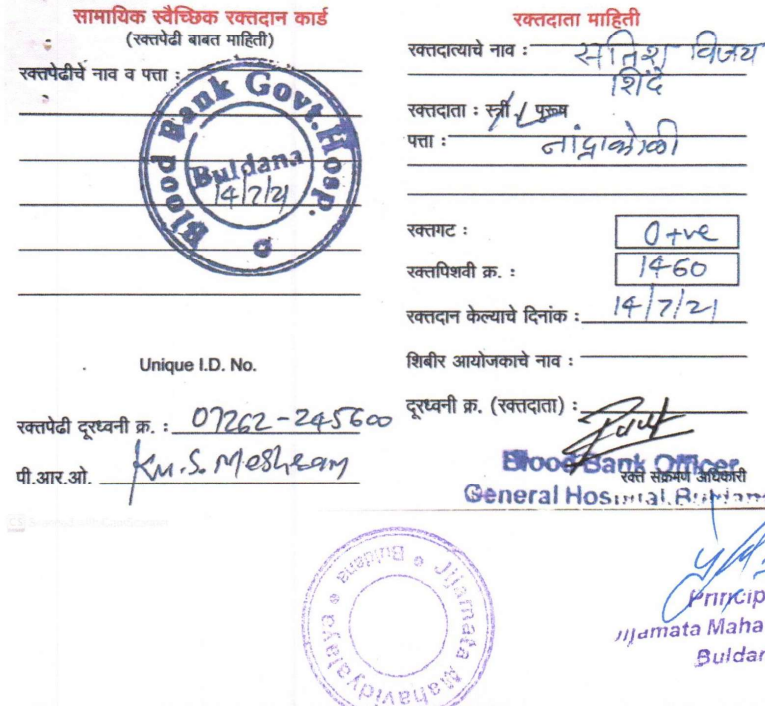 सामायिक स्वैच्छिक रक्तदान कार्ड
(रक्तपेढी बाबत माहिती)
रक्तपेढीचे नाव व पत्ता :
Blood Bank Govt. Hosp.
Buldana
14/7/21
Unique I.D. No.
रक्तपेढी दूरध्वनी क्र. : 07262-245600
पी.आर.ओ. Ku. S. Meshram
रक्तदाता माहिती
रक्तदात्याचे नाव : सतिश विजय
शिंदे
रक्तदाता : स्त्री / पुरूष
पत्ता : नांद्राकोळी
रक्तगट : O +ve
रक्तपिशवी क्र. : 1460
रक्तदान केल्याचे दिनांक : 14/7/21
शिबीर आयोजकाचे नाव :
दूरध्वनी क्र. (रक्तदाता) :
Blood Bank Officer
रक्त संक्रमण अधिकारी
General Hospital Buldana
Jijamata Mahavidyalaya Buldana
Princip
Jijamata Maha
Buldan